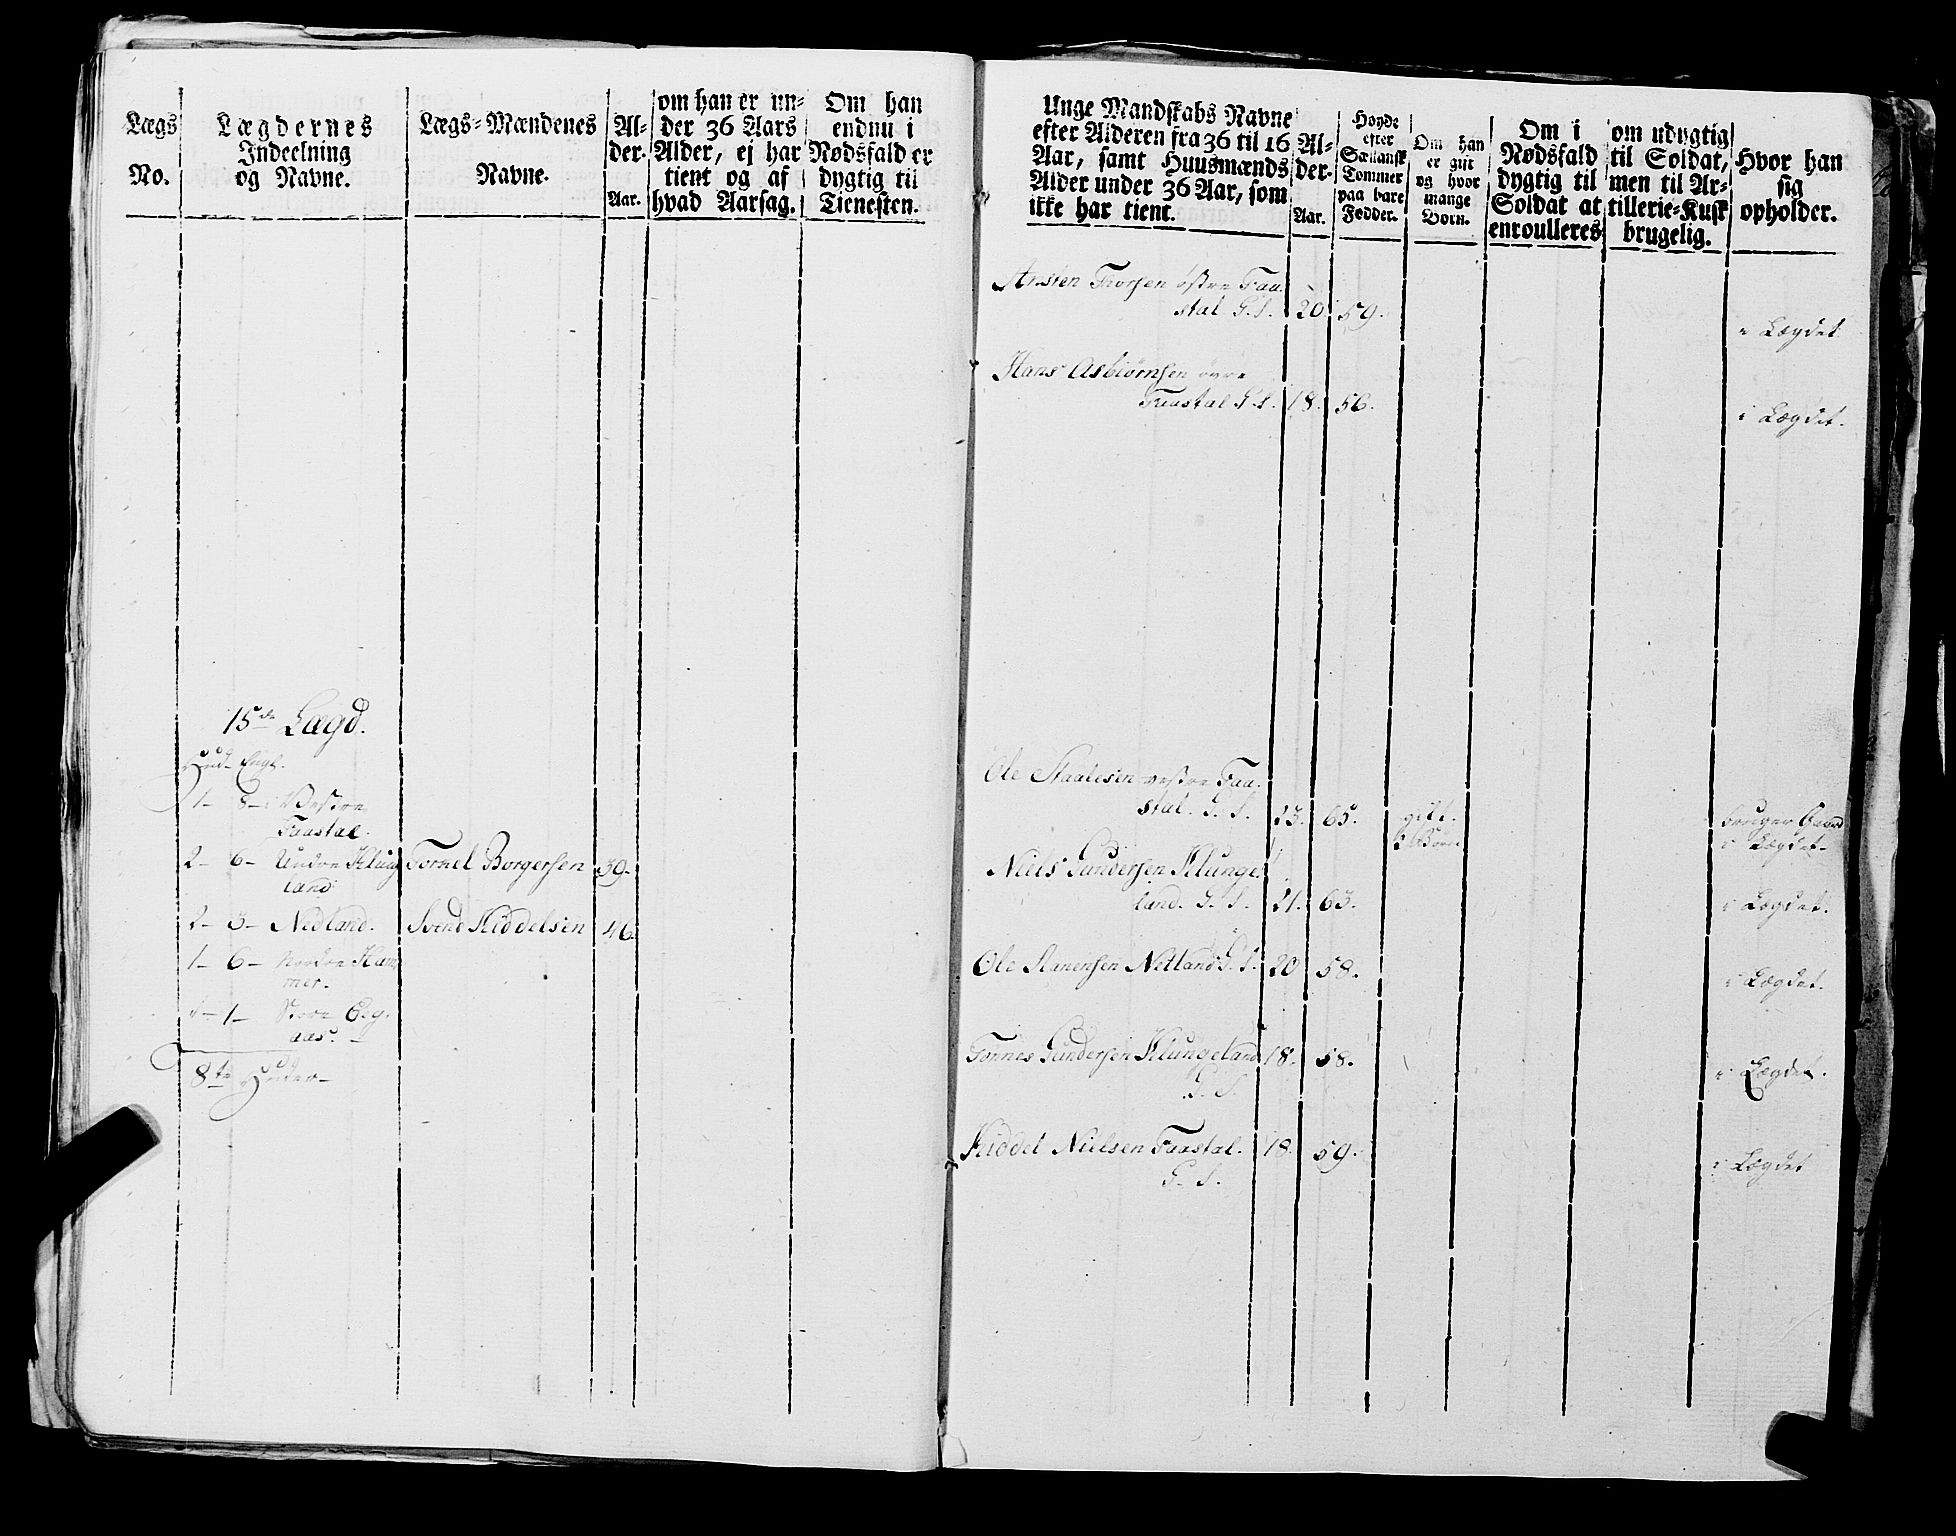 Lægs
No.
Lægdernes
Indeelning
og Navne.
Lægs-Mændenes
Navne.
Al-
der.
Aar.
om han er un-
der 36 Aars
Alder, ej har
tient og af
hvad Aarsag.
Om han
endnu i
Nødsfald er
dygtig til
Tienesten.
15de Lægd.
Hud. Engl.
1 - 8 - Vestre
Faastal.
2 - 6 - Undre Klung
land
Tormel Borgersen 39.
2 - 3 - Nedland.
Svend Kiddelsen 46.
1 - 6 - Nordre Ham
mer.
1 - Store Eeg
aas.
8te Huder
Unge Mandskabs Navne
efter Alderen fra 36 til 16
Aar, samt Huusmænds
Alder under 36 Aar, som
ikke har tient.
Al-
der.
Aar.
Høyde
efter
Sællansk
Tommer
paa bare
Fødder.
Om han
er gift
og hvor
mange
Børn.
Om i
Nødsfald
dygtig til
Soldat at
enroulleres
om udygtig
til Soldat,
men til Ar-
tillerie-Kusk
brugelig.
Hvor han
sig
opholder.
Arsten Thorsen østre Faa
stal G. S. 20 59.
i Lægdet
Hans Asbiørnsen øvre
Faastal G. S. 18. 56.
i Lægdet.
Ole Staalesen vestre Faa
stal. G. S. 23. 65. gift.
Børn
bruger Gaard
i Lægdet
Niels Gundersen Klunge
land. G. S. 21. 63.
i Lægdet.
Ole Aanensen Netland G. S. 20 58.
i Lægdet.
Tønnes Gundersen Klungeland 18. 58.
G. S.
i Lægdet.
Kiddel Nielsen Faastal. 18. 59.
G. S.
i Lægdet